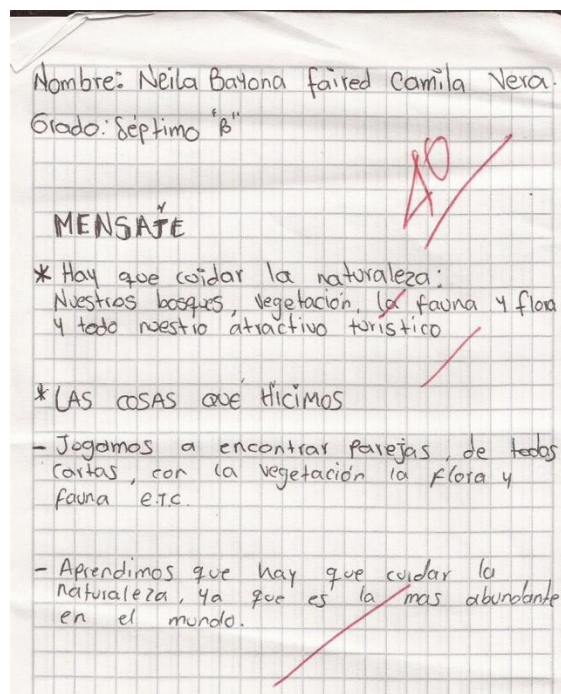 Nombre: Neila Bayona faired Camila Vera.
Grado: Séptimo "B"
10
MENSAJE
* Hay que cuidar la naturaleza:
Nuestros bosques, vegetación, la fauna y flora
y todo nuestro atractivo turistico
* LAS COSAS QUE HICIMOS
- Jogamos a encontrar Parejas, de todas
cartas, con la vegetación la flora y
fauna e.T.C.
- Aprendimos que hay que cuidar la
naturaleza, ya que es la mas abundante
en el mundo.